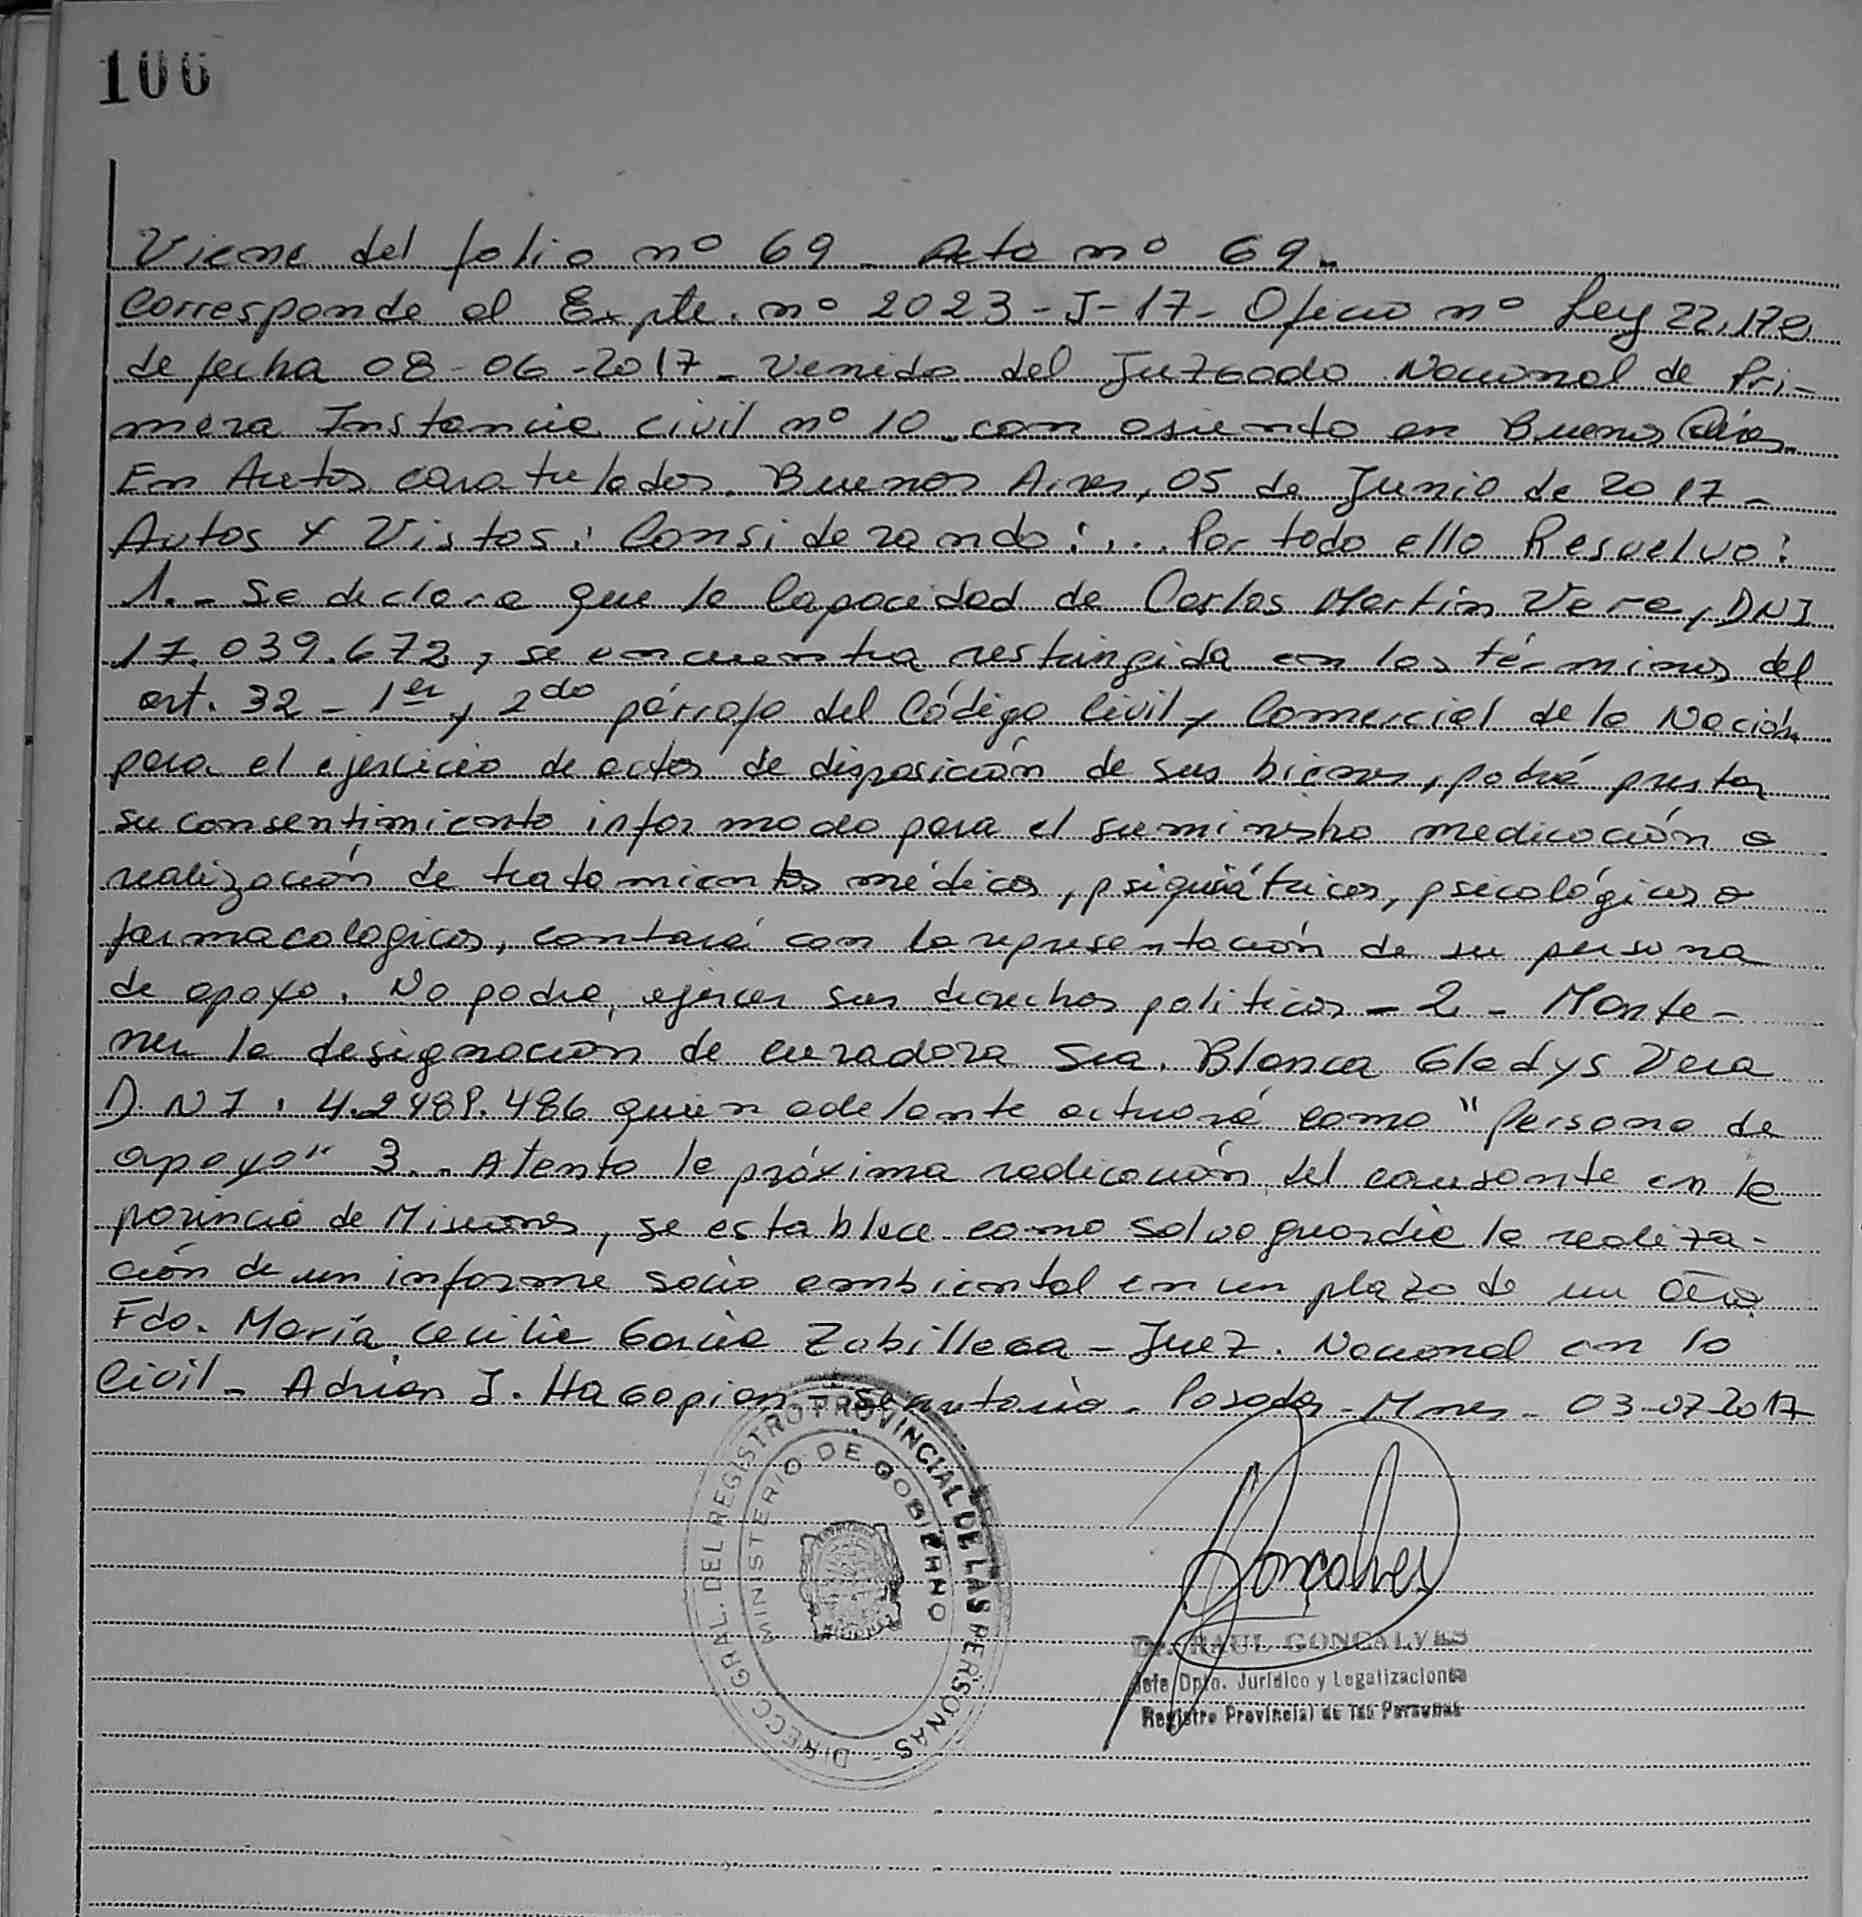 100
Viene del folio nº 69 - Acta nº 69.-
Corresponde al Expte. nº 2023-J-17- Oficio nº Ley 22.172
de fecha 08-06-2017- Venido del Juzgado Nacional de Pri-
mera Instancia civil nº 10 con asiento en Buenos Aires.
En Autos caratulados. Buenos Aires, 05 de Junio de 2017-
Autos y Vistos: Considerando: ... Por todo ello Resuelvo:
1.- Se declara que la Capacidad de Carlos Martín Vera, DNI
17.039.672, se encuentra restringida en los términos del
art. 32 - 1er y 2do párrafo del Código Civil y Comercial de la Nación
para el ejercicio de actos de disposición de sus bienes, podrá prestar
su consentimiento informado para el suministro medicación o
realización de tratamientos médicos, psiquiátricos, psicológicos o
farmacologicos, contará con la representación de su persona
de apoyo. No podra, ejercer sus derechos politicos - 2 - Mante-
ner la designación de curadora Sra. Blanca Gladys Vera
D.N.I. 4.2489.486 quien adelante actuará como "Persona de
apoyo" 3.- Atento la próxima radicación del causante en la
porincia de Misiones, se establece como salvoguardia la realiza-
ción de un informe socio ambiental en un plazo de un año
Fdo. María Cecilia Garcia Zubillaga - Juez. Nacional en lo
Civil - Adrian J. Hagopian - Secretario - Posadas - Mnes - 03-07-2017
DIRECC GRAL. DEL REGISTRO PROVINCIAL DE LAS PERSONAS -
MINISTERIO DE GOBIERNO
Gonçalves
Dr. RAUL GONCALVES
Jefe Dpto. Jurídico y Legalizaciones
Registro Provincial de las Personas